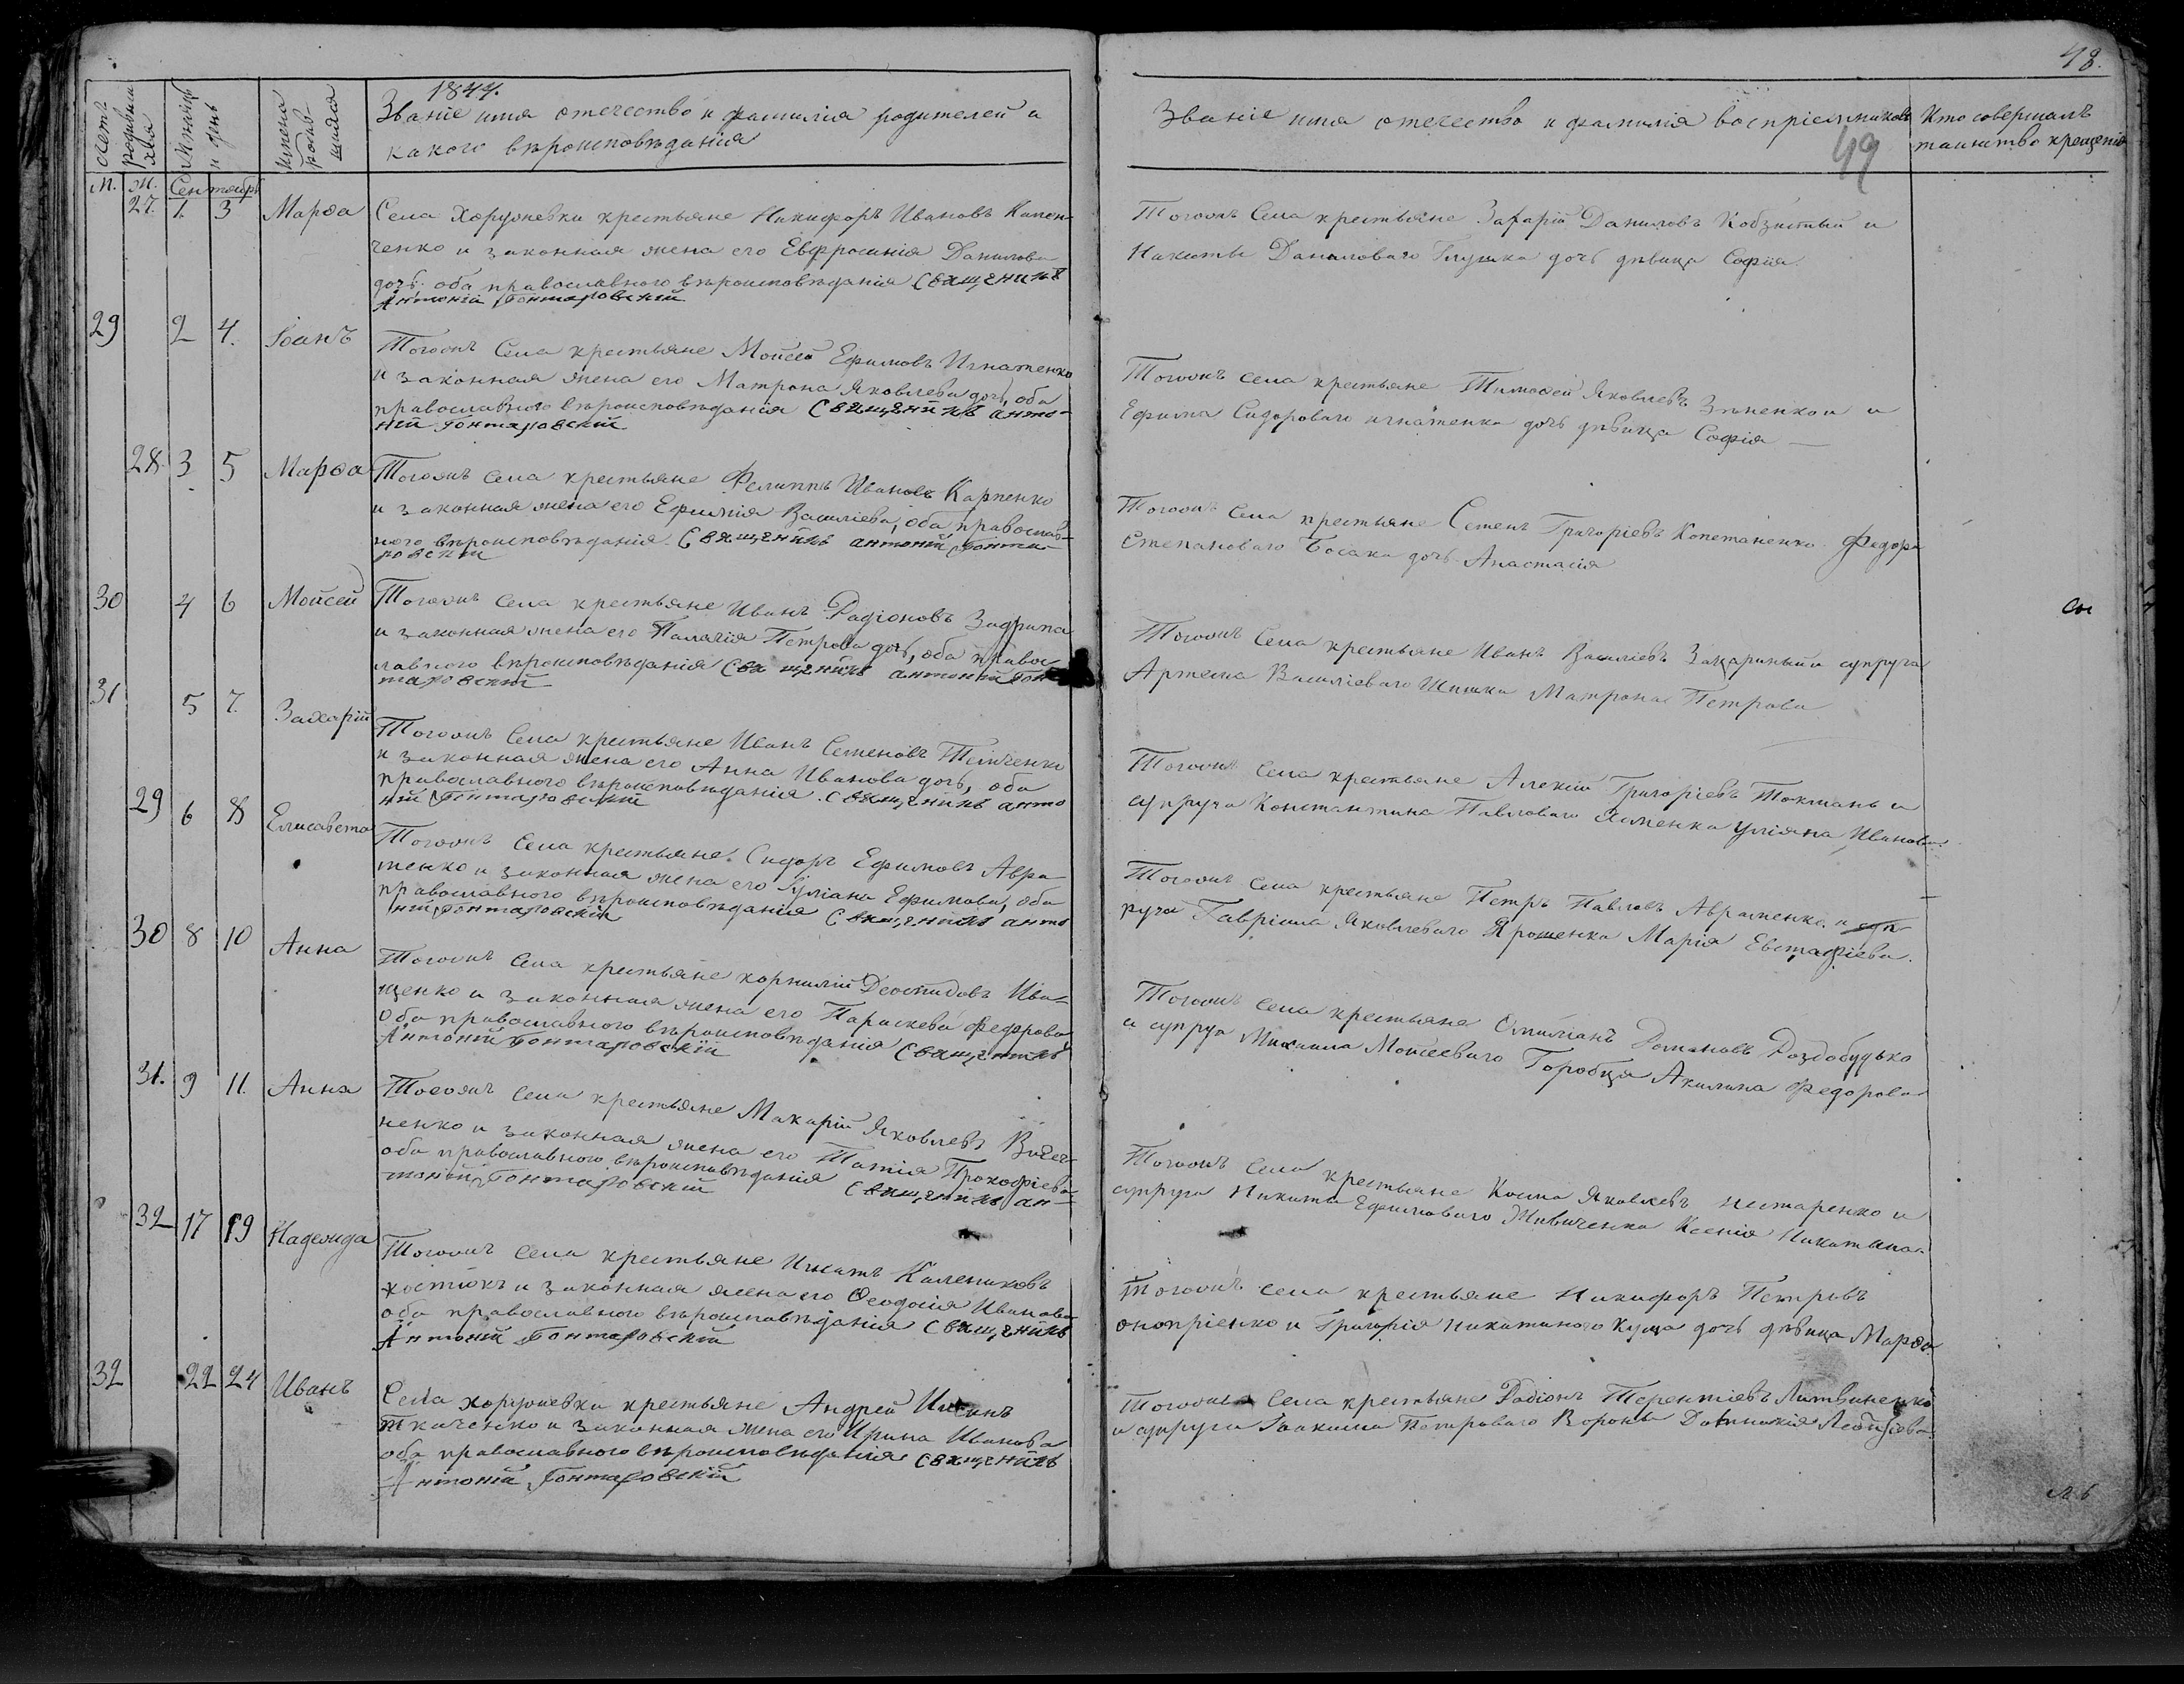 48.
49
1844.
Счетъ родившихся
Мѣсяцъ и день
Имена родившихся
Званіе имя отечество и фамилія родителей и
какого вѣроисповѣданія
Званіе имя отечество и фамилія воспріемниковъ
Кто совершалъ
таинство крещенія
М. Ж. Сентябрь
27. 1. 3 Марѳа
Села Хоружевки крестьяне Никифоръ Ивановъ
ченко и законная жена его Евфросинія Данилова
дочь. оба православного вѣроисповѣданія Священикъ
Антоній Гонтаровскій
Тогожъ Села крестьяне Захарій Даниловъ Кобзистый и
Никиты Даниловаго Глушка дочь дѣвица Софія
29 2 4. Іоанъ
Тогожъ Села крестьяне Мойсей Ефимовъ Игнатенко
и законная жена его Матрона Яковлева дочь, оба
православного вѣроисповѣданія Священикъ анто-
ній Гонтаровскій
Тогожъ села крестьяне Тимоѳей Яковлевъ и
Ефима Сидороваго игнатенка дочь дѣвица Софія
28. 3 5 Марѳа
Тогожъ села крестьяне Филиппъ Ивановъ Карпенко
и законная жена его Ефимія Василіева, оба православ-
ного вѣроисповѣданія. Священикъ антоній Гонта-
ровскій
Тогожъ Села крестьяне Семенъ Григоріевъ Копетаненко Федора
Степановаго Босака дочь Анастасія
30 4 6 Мойсей
Тогожъ села крестьяне Иванъ Радіоновъ Задрипа
и законная жена его Палагія Петрова дочь, оба правос
лавного вѣроисповѣданія Священикъ антоній Гон
таровскій
Тогожъ Села крестьяне Иванъ Василіевъ и супруга
Артема Василіеваго Шишки Матрона Петрова
31 5 7. Захарій
Тогожъ Села крестьяне Иванъ Семеновъ
и законная жена его Анна Иванова дочь, оба
православного вѣроисповѣданія. Священикъ анто
ній Гонтаровскій
Тогожъ Села крестьяне Алексій Григоріевъ Токмань и
супруга Константина Павловаго Якименка Уліяна Иванова.
29 6 8 Елисавета
Тогожъ Села крестьяне Сидоръ Ефимовъ Авра-
менко и законная жена его Уліана Ефимова, оба
православного вѣроисповѣданія Священикъ анто
ній Гонтаровскій
Тогожъ Села крестьяне Петръ Павловъ Авраменко. и суп-
руга Гавріила Яковлеваго Ярошенка Марія Евстафіева.
30 8 10 Анна
Тогожъ Села крестьяне корнилій Ива-
щенко и законная жена его Параскева Федорова
Оба православного вѣроисповѣданія Священикъ
Антоній Гонтаровскій
Тогожъ Села крестьяне Омиліанъ Романовъ Роздобудько
и супруга Михаила Мойсееваго Горобця Акилина Федорова
31. 9 11. Анна
Тогожъ Села крестьяне Макарій Яковлевъ
ненко и законная жена его Татія Прокофіева
оба православного вѣроисповѣданія Священикъ ан-
тоній Гонтаровскій
Тогожъ Села крестьяне Косма Яковлевъ нестаренко и
супруга Никита Ефимоваго Ксенія Никитина
32 17 19 Надежда
Тогожъ Села крестьяне Игнатъ Калениковъ
костюкъ и законная жена его Ѳеодосія Иванова
оба православного вѣроисповѣданія Священикъ
Антоній Гонтаровскій
Тогожъ села крестьяне Никифоръ Петровъ
оноприенко и Григорія никитиного Куща дочь дѣвица Марѳа.
32 22 24 Иванъ
Села хоружевки крестьяне Андрей
Ткаченко и законная жена его Ирина Иванова
оба православного вѣроисповѣданія Священикъ
Антоній Гонтаровскій
Тогожъ Села крестьяне Радіонъ Терентіевъ Литвиненко
и супруга Іоакима Петроваго Вороны